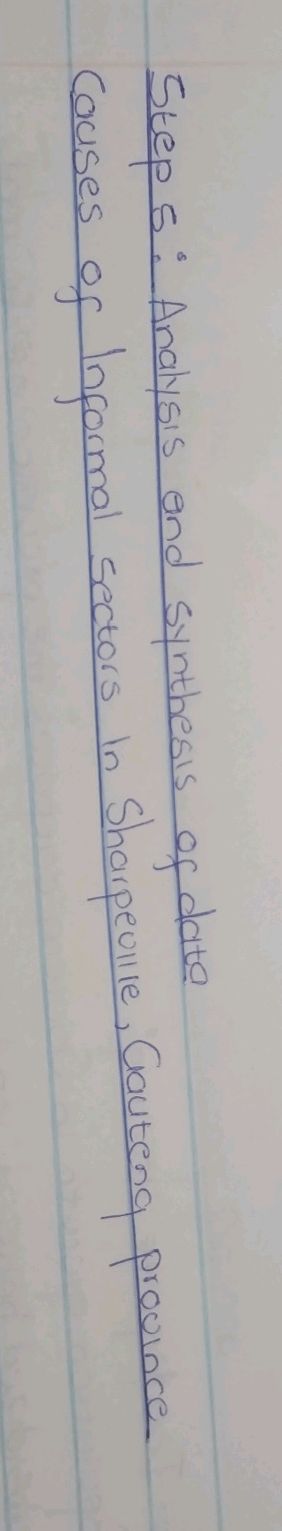 Step 5: Analysis and synthesis of data
Causes of Informal sectors In Sharpeville, Gauteng province